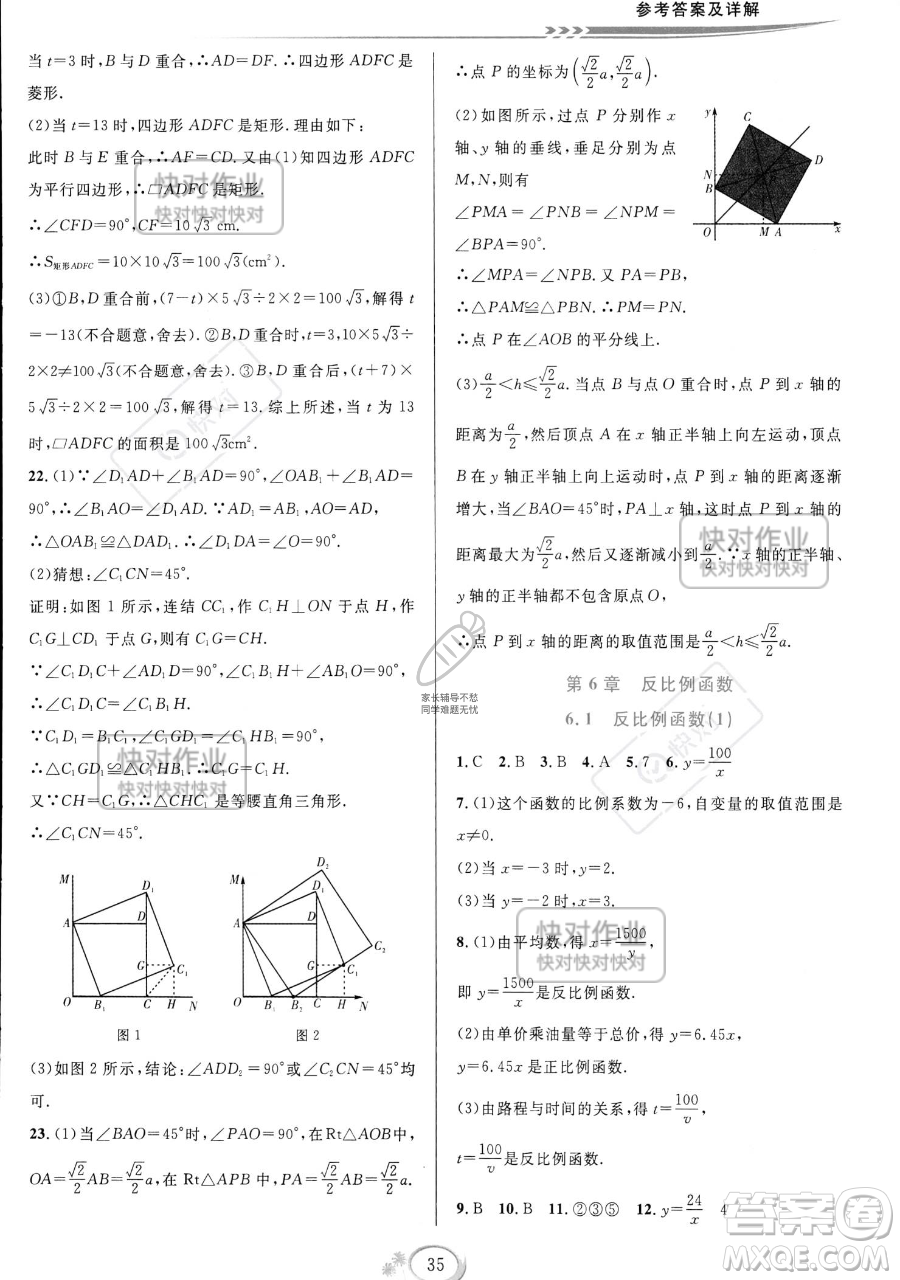 参考答案及详解
当 t=3 时，B 与 D 重合，∴AD=DF. ∴四边形 ADFC 是
菱形.
(2)当 t=13 时，四边形 ADFC 是矩形. 理由如下：
此时 B 与 E 重合，∴AF=CD. 又由(1)知四边形 ADFC
为平行四边形，∴□ADFC 是矩形.
∴∠CFD=90°，CF=10√3 cm.
∴S矩形ADFC=10×10√3=100√3(cm²).
(3)①B，D 重合前，(7-t)×5√3÷2×2=100√3，解得 t
=-13(不合题意，舍去). ②B，D 重合时，t=3，10×5√3÷
2×2≠100√3(不合题意，舍去). ③B，D 重合后，(t+7)×
5√3÷2×2=100√3，解得 t=13. 综上所述，当 t 为 13
时，□ADFC 的面积是 100√3cm².
22. (1)∵∠D₁AD+∠B₁AD=90°，∠OAB₁+∠B₁AD
=90°，∴∠B₁AO=∠D₁AD. ∵AD₁=AB₁，AO=AD，
∴△OAB₁≌△DAD₁. ∴∠D₁DA=∠O=90°.
(2)猜想：∠C₁CN=45°.
证明：如图 1 所示，连结 CC₁，作 C₁H⊥ON 于点 H，作
C₁G⊥CD₁ 于点 G，则有 C₁G=CH.
∵∠C₁D₁C+∠AD₁D=90°，∠C₁B₁H+∠AB₁O=
90°，∴∠C₁D₁C=∠C₁B₁H.
∵C₁D₁=C₁B₁，∠C₁GD₁=∠C₁HB₁=90°，
∴△C₁GD₁≌△C₁HB₁. ∴C₁G=C₁H.
又∵CH=C₁G，∴△CHC₁ 是等腰直角三角形.
∴∠C₁CN=45°.
M D₁ A D G C₁ O B₁ C H N
图 1
M D₂ D₁ A D C₂ G C₁ O B₁ B₂ C H N
图 2
(3)如图 2 所示，结论：∠ADD₂=90°或∠C₂CN=45°均
可.
23. (1)当∠BAO=45°时，∠PAO=90°，在 Rt△AOB中，
OA=√2/2 AB=√2/2 a，在 Rt△APB 中，PA=√2/2 AB=√2/2 a.
∴点 P 的坐标为(√2/2 a，√2/2 a).
(2)如图所示，过点 P 分别作 x
轴、y 轴的垂线，垂足分别为点
M，N，则有
∠PMA=∠PNB=∠NPM=
∠BPA=90°.
∴∠MPA=∠NPB. 又 PA=PB，
∴△PAM≌△PBN. ∴PM=PN.
∴点 P 在∠AOB 的平分线上.
y C D N P B O M A x
(3)a/2<h≤√2/2 a. 当点 B 与点 O 重合时，点 P 到 x 轴的
距离为a/2，然后顶点 A 在 x 轴正半轴上向左运动，顶点 B
在 y 轴正半轴上向上运动时，点 P 到 x 轴的距离逐渐
增大，当∠BAO=45°时，PA⊥x 轴，这时点 P 到 x 轴的
距离最大为√2/2 a，然后又逐渐减小到a/2. ∵x 轴的正半轴、
y 轴的正半轴都不包含原点 O，
∴点 P 到 x 轴的距离的取值范围是a/2<h≤√2/2 a.
第 6 章 反比例函数
6.1 反比例函数(1)
1. C 2. B 3. B 4. A 5. 7 6. y=100/x
7. (1)这个函数的比例系数为-6，自变量的取值范围是
x≠0.
(2)当 x=-3 时，y=2.
(3)当 y=-2 时，x=3.
8. (1)由平均数，得 x=1500/y，
即 y=1500/x是反比例函数.
(2)由单价乘油量等于总价，得 y=6.45x，
y=6.45x是正比例函数.
(3)由路程与时间的关系，得 t=100/v，
t=100/v是反比例函数.
9. B 10. B 11. ②③⑤ 12. y=24/x 4
35
快对作业
快对快对快对
快对作业
快对快对快对
快对作业
快对快对快对
快对作业
快对快对快对
快对
快对
家长辅导不愁
同学难题无忧
答案圈
MXQE.COM